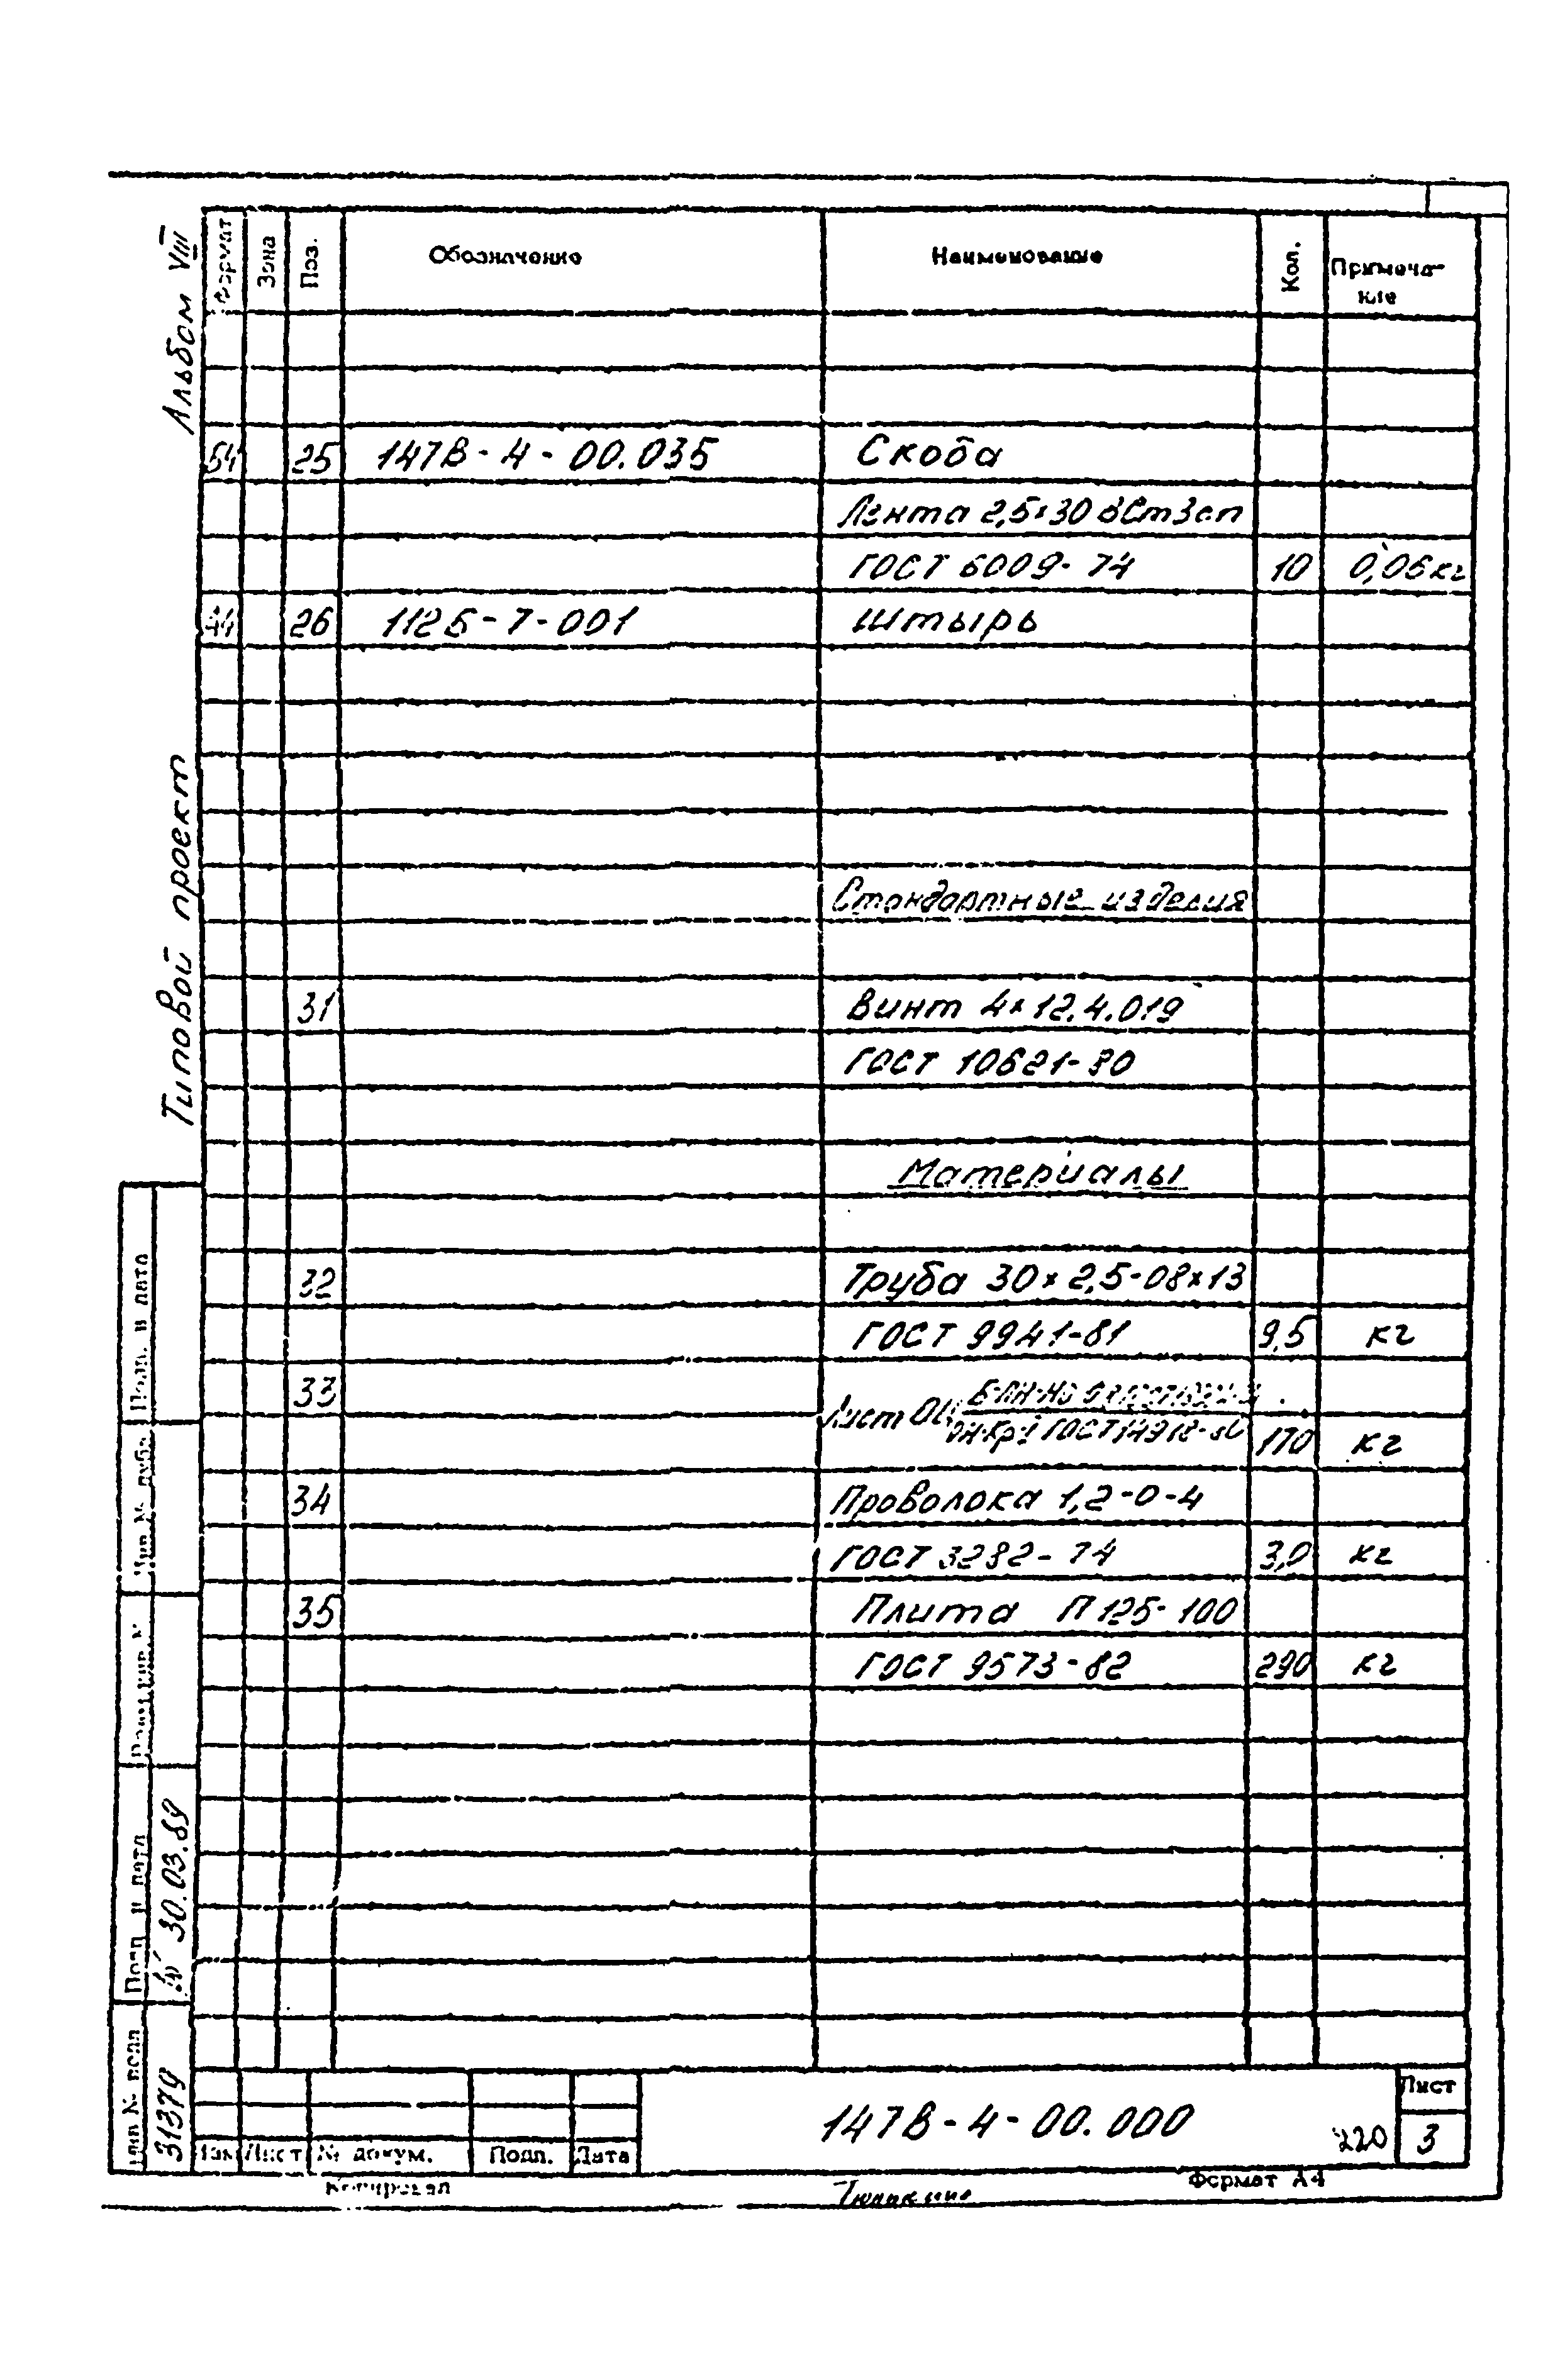 Альбом VIII
Типовой проект
Формат Зона Поз. Обозначение Наименование Кол. Примеча-
ние
БЧ 25 147В-4-00.035 Скоба
Лента 2,5×30 ВСт3сп
ГОСТ 6009-74 10 0,06 кг
А4 26 112Б-7-001 Штырь
Стандартные изделия
31 Винт 4×12.4.019
ГОСТ 10621-80
Материалы
32 Труба 30×2,5-08×13
ГОСТ 9941-81 9,5 кг
33 Лист ОЦ
ГОСТ 14918-80 170 кг
34 Проволока 1,2-0-4
ГОСТ 3282-74 3,0 кг
35 Плита П125-100
ГОСТ 9573-82 290 кг
Подп. и дата
Инв. № дубл.
Взам. инв. №
Подп. и дата 30.03.89
Инв. № подл. 31379
Изм Лист № докум. Подп. Дата
147В-4-00.000
220
Лист
3
Копировал
Формат А4